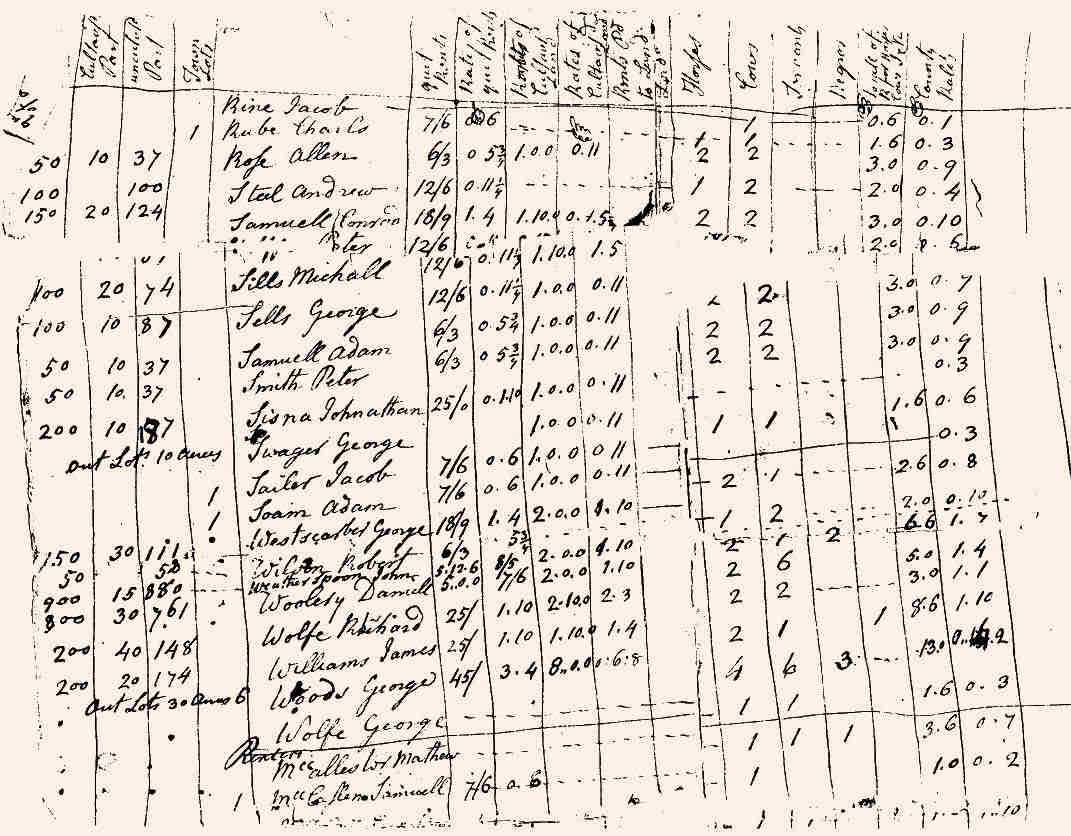 Cultavd Part uncultd Part Town Lots quit Rents Rates of quit Rents Rents of Cultavd Land Rates of Cultavd Land Horses Cows Servants Negros County Rates
Rine Jacob
1 Rube Charls 7/6 0 6 1 0.6 0.1
50 10 37 Rose Allen 6/3 0 5¾ 1.0.0 0.11 1 1 1.6 0.3
2 2 3.0 0.9
100 100 Steel Andrew 12/6 0.11¼ 1 2 2.0 0.4
150 20 124 Samuell Conrod 18/9 1.4 1.10.0 0.1.5 2 2 3.0 0.10
" " Peter 12/6 2.0
12/6 0.11¼ 1.10.0 1.5
100 20 74 Sills Michall 12/6 0.11¼ 1.0.0 0.11 2 2 3.0 0.7
100 10 87 Sells George 6/3 0 5¾ 1.0.0 0.11 2 2 3.0 0.9
50 10 37 Samuell Adam 6/3 0 5¾ 1.0.0 0.11 2 2 3.0 0.9
50 10. 37 Smith Peter 0.3
200 10 187 Sisna Johnathan 25/0 0.1.10 1.0.0 0.11 1 1 1.6 0.6
out Lots 10 acres Swager George 1.0.0 0.11 0.3
1 Sailer Jacob 7/6 0.6 1.0.0 0 11 2 1 2.6 0.8
1 Soam Adam 7/6 0.6 1.0.0 0.11
150 30 111 Westscarber George 18/9 1.4 2.0.0 1.10 1 2 2.0 0.10
50 50 Wilson Robert 6/3 5¾ 2 1 2 6.6 1.7
900 15 880 Weatherspoon John 5.12.6 8/5 2.0.0 1.10 2 6 5.0 1.4
800 30 761 Woolery Daniell 5.0.0 7/6 2.0.0 1.10 2 2 3.0 1.1
200 40 148 Wolfe Richard 25/ 1.10 2.10.0 2.3 2 1 1 8.6 1.10
200 20 174 Williams James 25/ 1.10 1.10.0 1.4
out Lots 30 acres 6 Woods George 45/ 3.4 8.0.0 0:6:8 4 6 3 13.0
Wolfe George 1 1 1.6 0.3
Renters
McCallester Mathew 1 1 1 3.6 0.7
1 Samuell 7/6 0.6 1 1.0 0.2